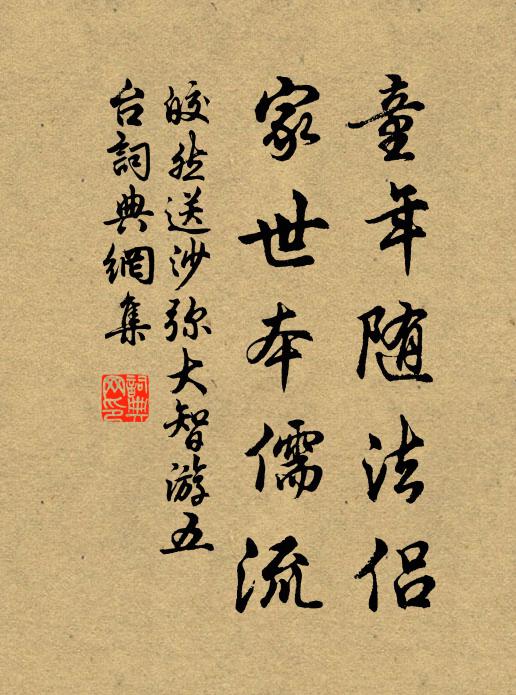 童年随法侣
家世本儒流
皎然送沙弥大智游五
台詞典網集
詞典
网印